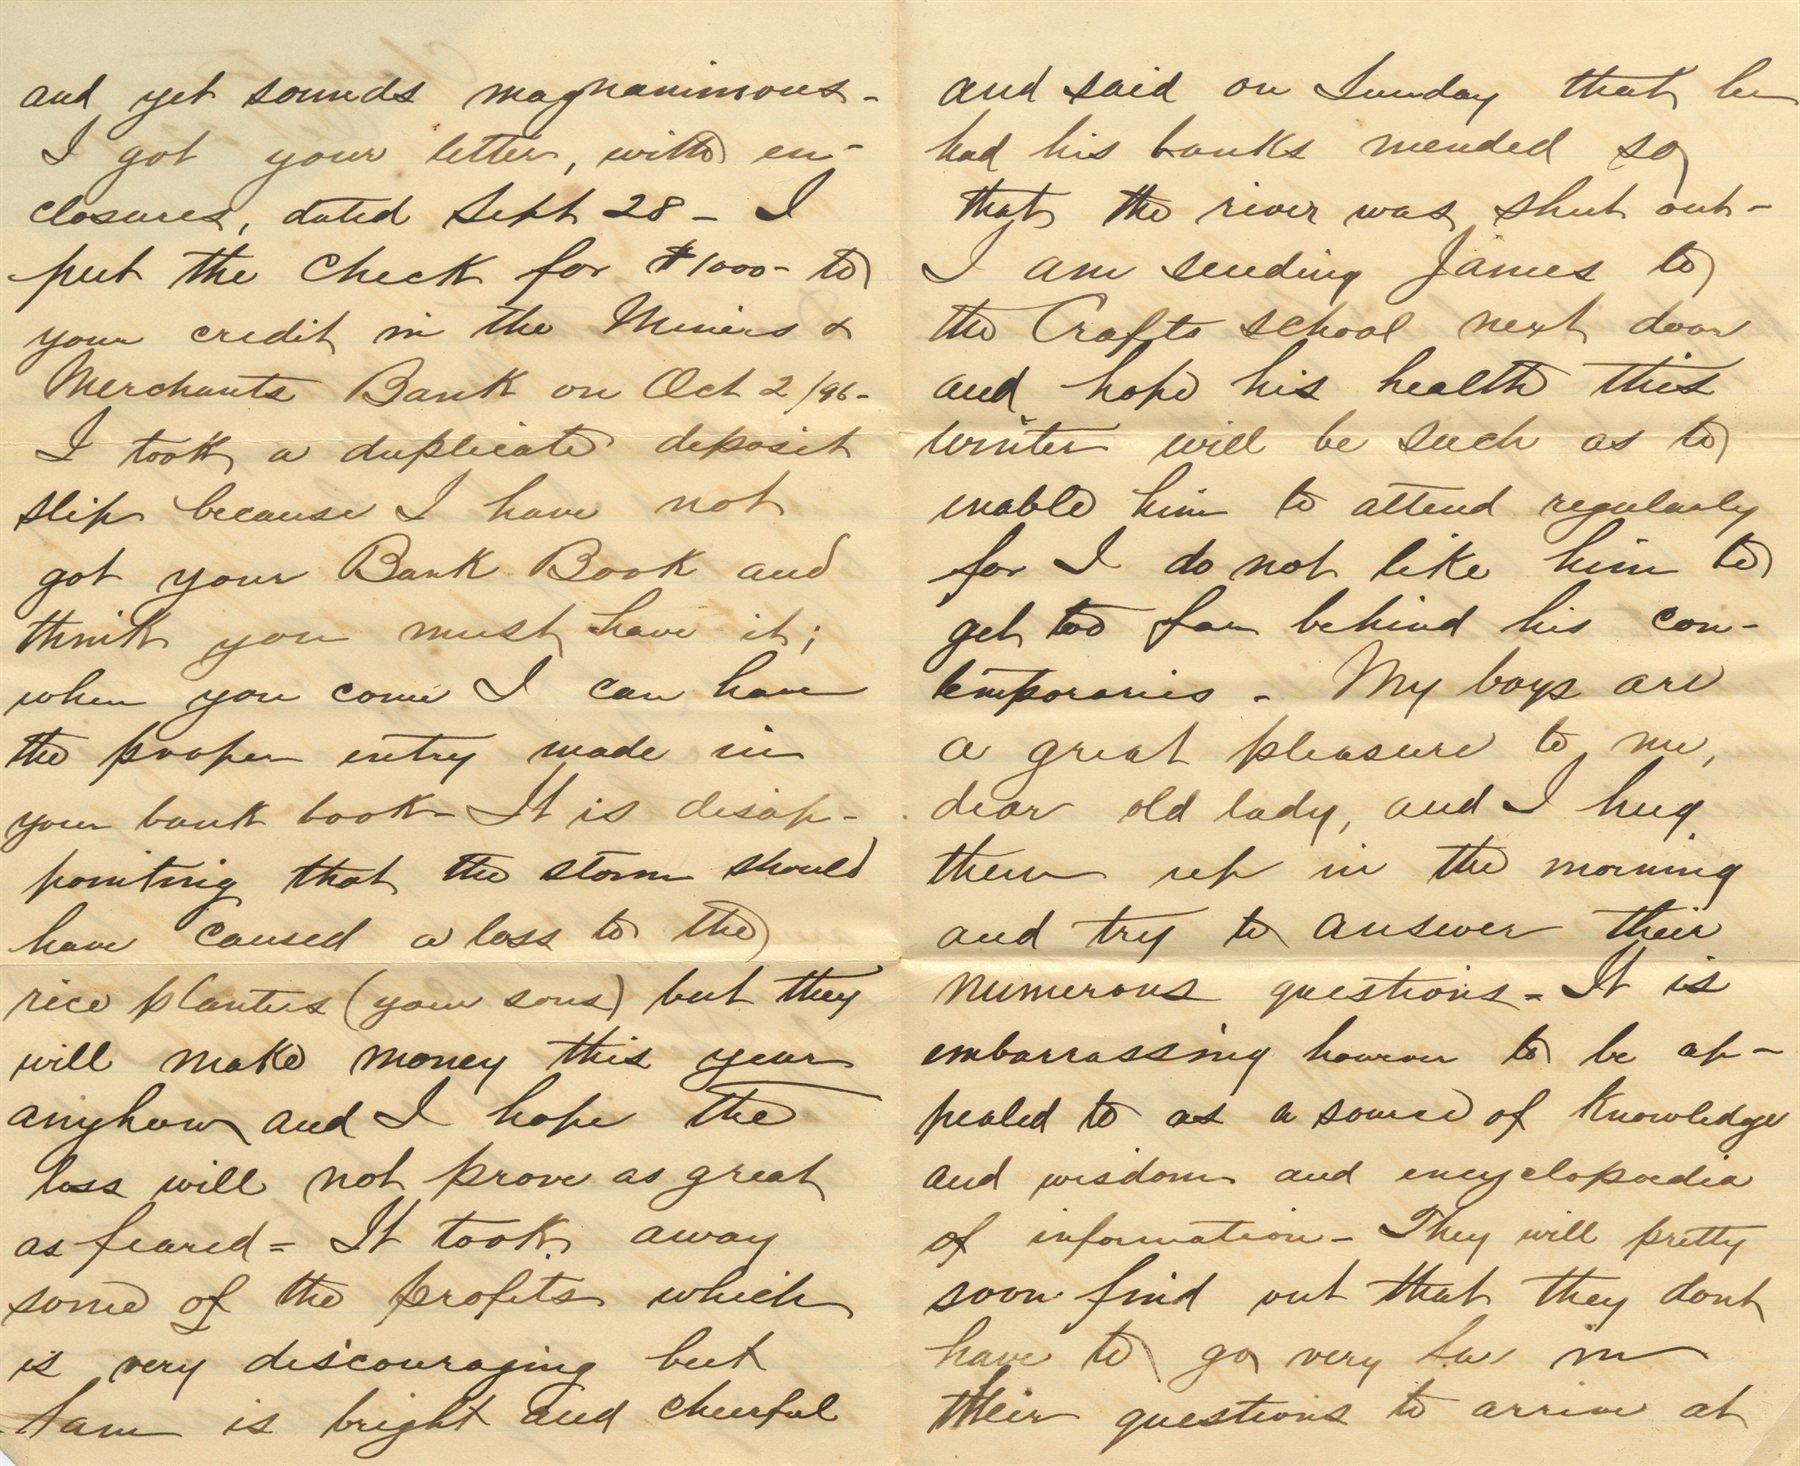 and yet sounds magnanimous-
I got your letter, with en-
closures, dated Sept 28 - I
put the check for $1000- to
your credit in the Miners &
Merchants Bank on Oct 2/96-
I took a duplicate deposit
slip because I have not
got your Bank Book and
think you must have it;
when you come I can have
the proper entry made in
your bank book- It is disap-
pointing that the storm should
have caused a loss to the
rice planters (your sons) but they
will make money this year
anyhow and I hope the
loss will not prove as great
as feared - It took away
some of the profits which
is very discouraging but
Sam is bright and cheerful
and said on Sunday that he
had his banks mended so
that the river was shut out-
I am sending James to
the Crafts school next door
and hope his health this
winter will be such as to
enable him to attend regularly
for I do not like him to
get too far behind his con-
temporaries - My boys are
a great pleasure to me,
dear old lady, and I hug
them up in the morning
and try to answer their
numerous questions - It is
embarrassing however to be ap-
pealed to as a source of knowledge
and wisdom and encyclopædia
of information - They will pretty
soon find out that they dont
have to go very far in
their questions to arrive at